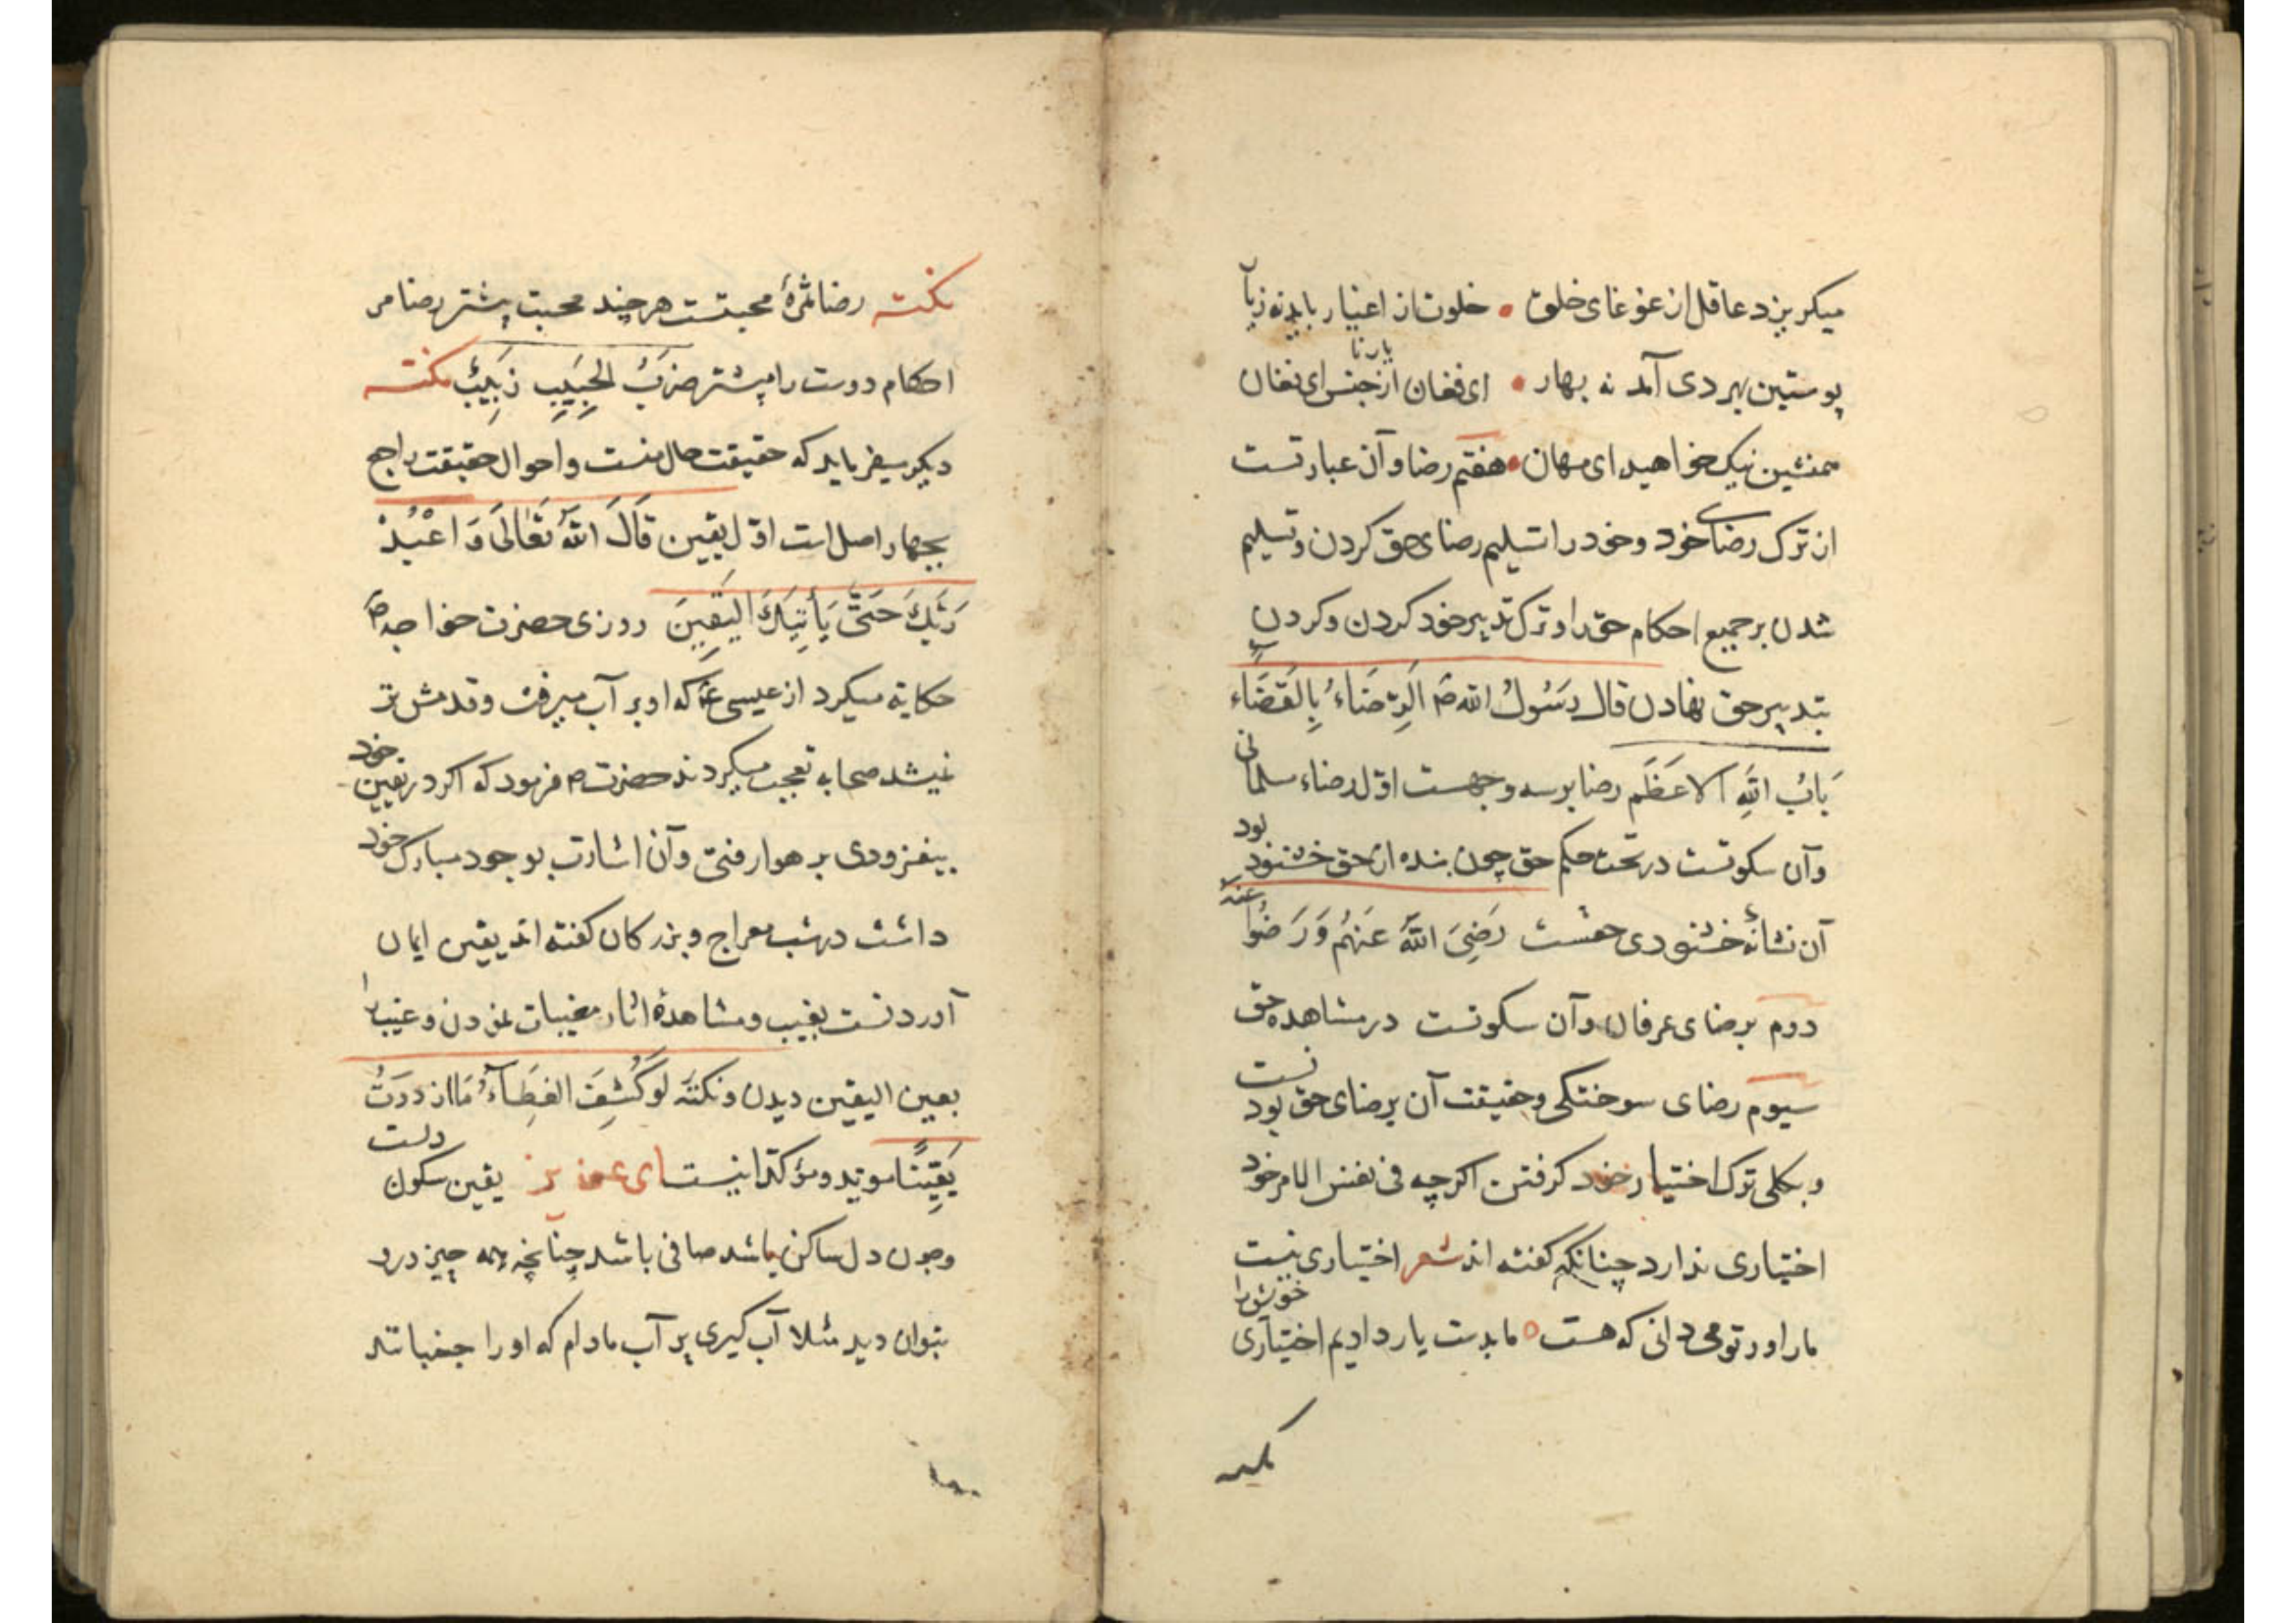 میکریزد عاقل از غوغای خلق • خلوت از اغیار باید نه ز یار
پوستین بهر دی آمد نه بهار • ای فغان از یار ناجنس ای فغان
همنشین نیک خواهید ای مهان • هفتم رضا و آن عبارتست
از ترک رضای خود و خود را تسلیم رضای حق کردن و تسلیم
شدن بر جمیع احکام حق را و ترک تدبیر خود کردن و کردن
بتدبیر حق نهادن قال رَسُولُ الله صَ اَلرِّضَاءُ بِالقَضَاء
بَابُ اللهِ الاعَظَم رضا بر سه وجهست اوّل رضاء سلمانی
و آن سکونتست در تحت حکم حق چون بنده از حق خشنود بود
آن نشانهٔ خشنودی حقست رَضِیَ اللهُ عَنهُم وَرَضُوا عنهُ
دوم برضای عرفان و آن سکونتست در مشاهده حق
سیوم رضای سوختکی و حقیقت آن برضای حق بودنست
و بکلی ترک اختیار خود کرفتن اکرچه فی نفس الامر خود
اختیاری ندارد چنانکه کفته اند شعر اختیاری نیست
ما را ور تو می دانی که هست ما بدست یار دادیم اختیاری خویش را
نکته
نکته رضا ثمرهٔ محبتست هر چند محبت پیشتر رضا مر
احکام دوست را پیشتر ضَربُ الحَبِیبِ زَبِیبٌ نکته
دیکر سفر باید که حقیقت حال منست و احوال حقیقت راجع
بچهار اصل است اوّل یقین قَالَ اللهُ تَعَالَی وَ اعْبُدْ
رَبَّكَ حَتّیَ یَأتِیَكَ الیَقِینَ روزی حضرت خواجه صَ
حکایة میکرد از عیسی عَم که او بر آب میرفت و قدمش تر
نمیشد صحابه تعجب میکردند حضرت ص فرمود که اکر در یقین خود
بیفزودی بر هوا رفتی و آن اشارت بوجود مبارک خود
داشت در شب معراج و بزرکان کفته اند یقین ایمان
آوردنست بغیب و مشاهدهٔ اثار مغیبات نمودن و غیب را
بعین الیقین دیدن و نکته لَو کُشِفَ الغِطَآءُ مَا ازدَدَتُ
یَقِینًا موید و مؤکد اینست ای عزیز یقین سکون دلست
و چون دل ساکن باشد صافی باشد چنانچه همه چیز درو
بتوان دید مثلا آب کیری پر آب مادام که او را جنبانند